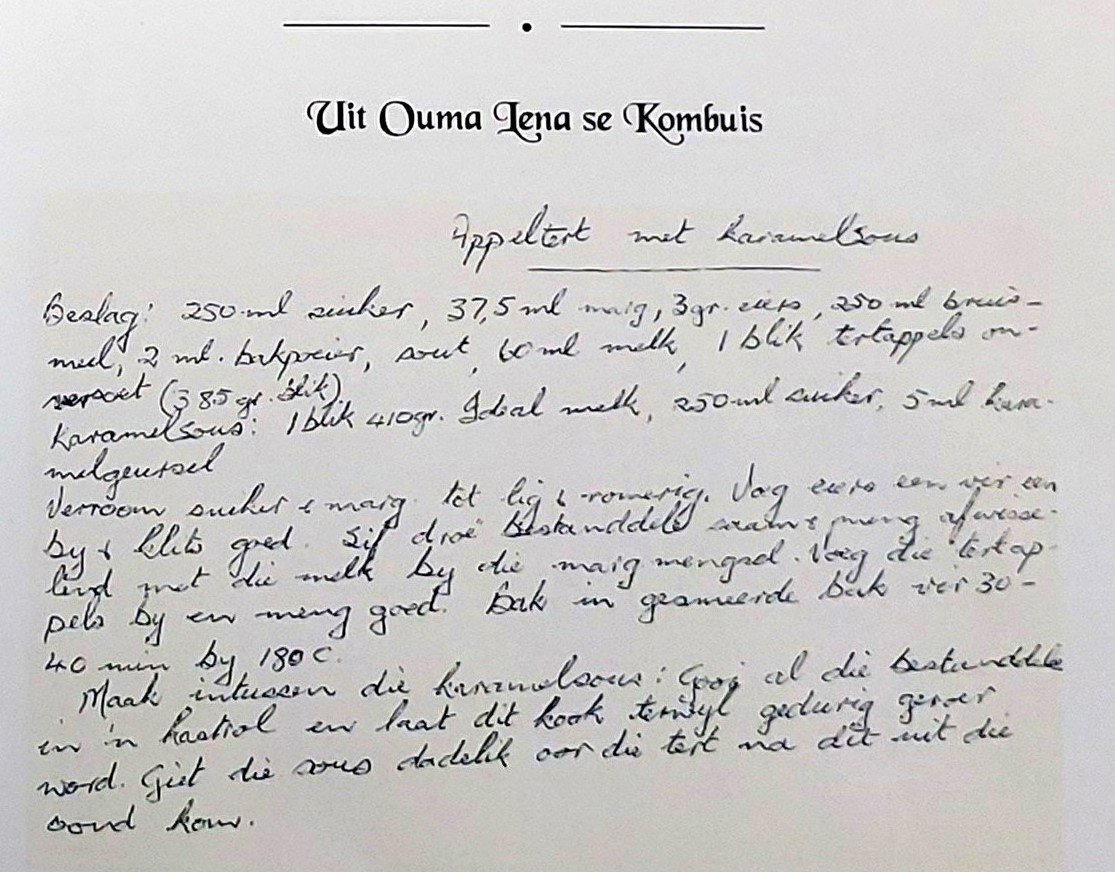 Uit Ouma Lena se Kombuis
Appeltert met karamelsous
Beslag: 250 ml suiker, 37,5 ml marg, 3 gr. eiers, 250 ml bruis-
meel, 2 ml. bakpoeier, sout, 60 ml melk, 1 blik tertappels on-
versoet (385 gr. blik)
Karamelsous: 1 blik 410gr. Ideal melk, 250 ml suiker, 5 ml kara-
melgeursel
Verroom suiker & marg tot lig & romerig. Voeg eiers een vir een
by & klits goed. Sif droë bestanddele saam & meng afwisse-
lend met die melk by die marg mengsel. Voeg die tertap-
pels by en meng goed. Bak in gesmeerde bak vir 30-
40 min by 180 C.
Maak intussen die karamelsous: Gooi al die bestanddele
in 'n kastrol en laat dit kook terwyl gedurig geroer
word. Giet die sous dadelik oor die tert na dit uit die
oond kom.